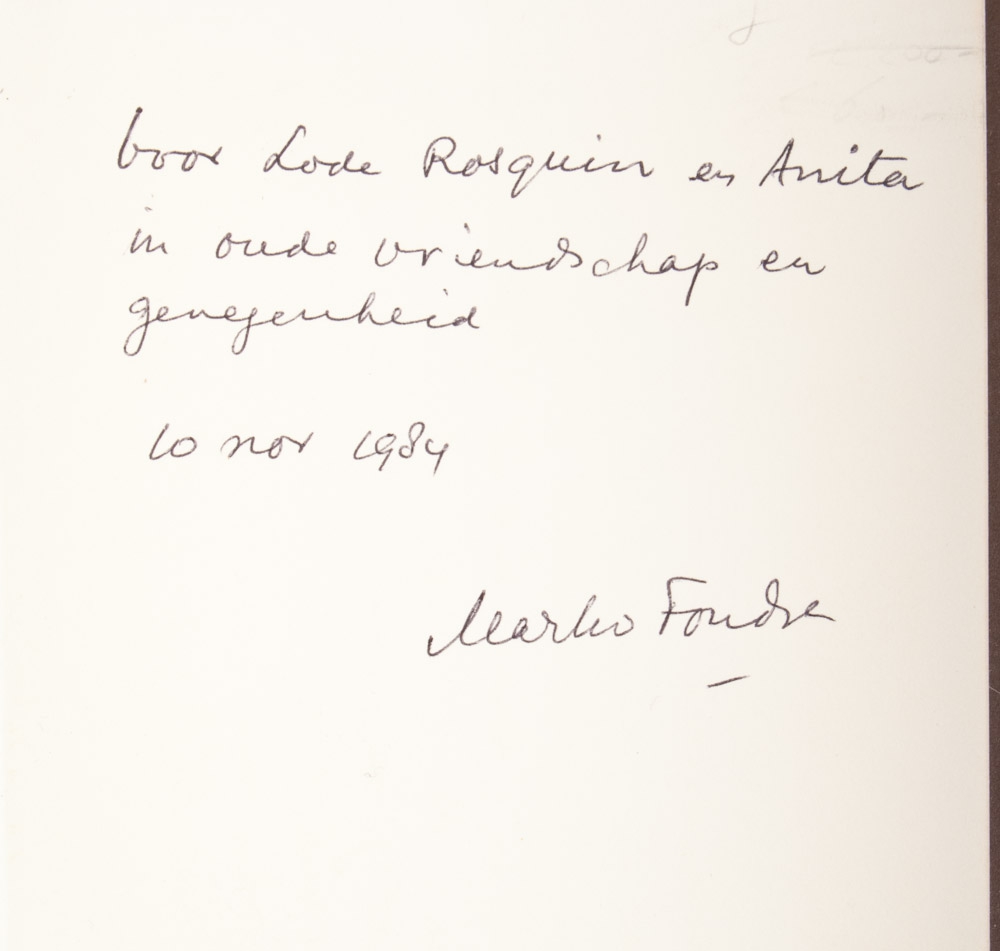 voor Lode Rosquin en Anita
in oude vriendschap en
genegenheid
10 nov 1984
Marko Fondse